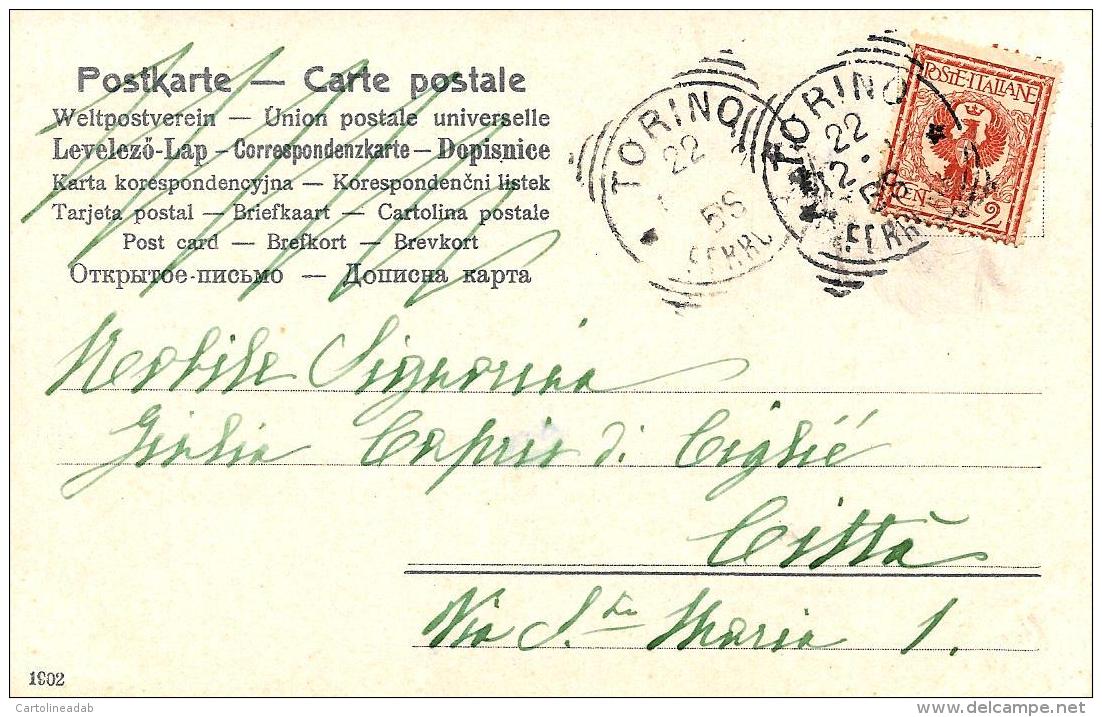 Postkarte — Carte postale
Weltpostverein — Union postale universelle
Levelező-Lap – Correspondenzkarte – Dopisnice
Karta korespondencyjna — Korespondenční listek
Tarjeta postal — Briefkaart — Cartolina postale
Post card — Brefkort — Brevkort
Открытое-письмо — Дописна карта
TORINO
22
TORINO
22
POSTE·ITALIANE
CEN 2
Nobile Signorina
Giulia Capris di Cigliè
Città
Via S.ta Maria 1.
1902
© Cartolineadab
www.delcampe.net